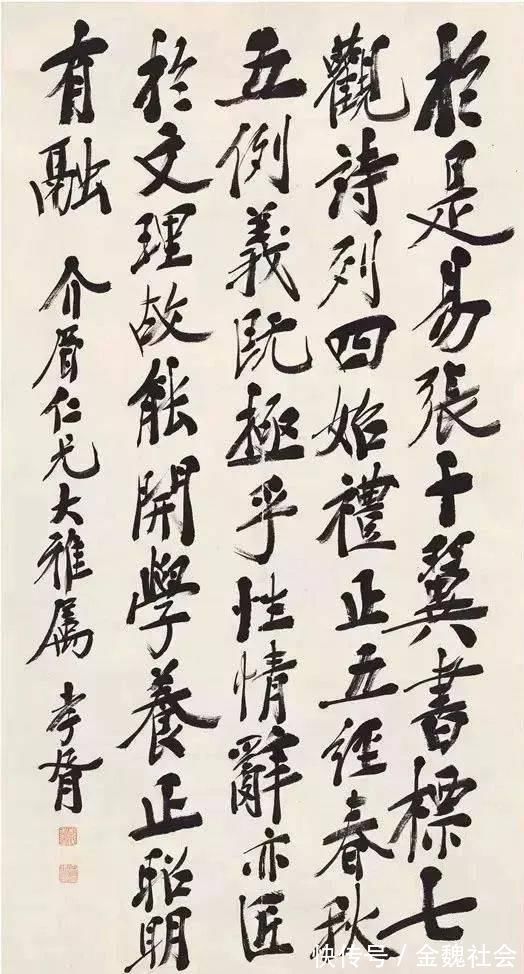 於是易張十翼書標七
觀詩列四始禮正五經春秋
五例義既極乎性情辭亦匠
於文理故能開學養正昭明
有融
介眉仁兄大雅属 孝胥
快传号 / 金魏社会